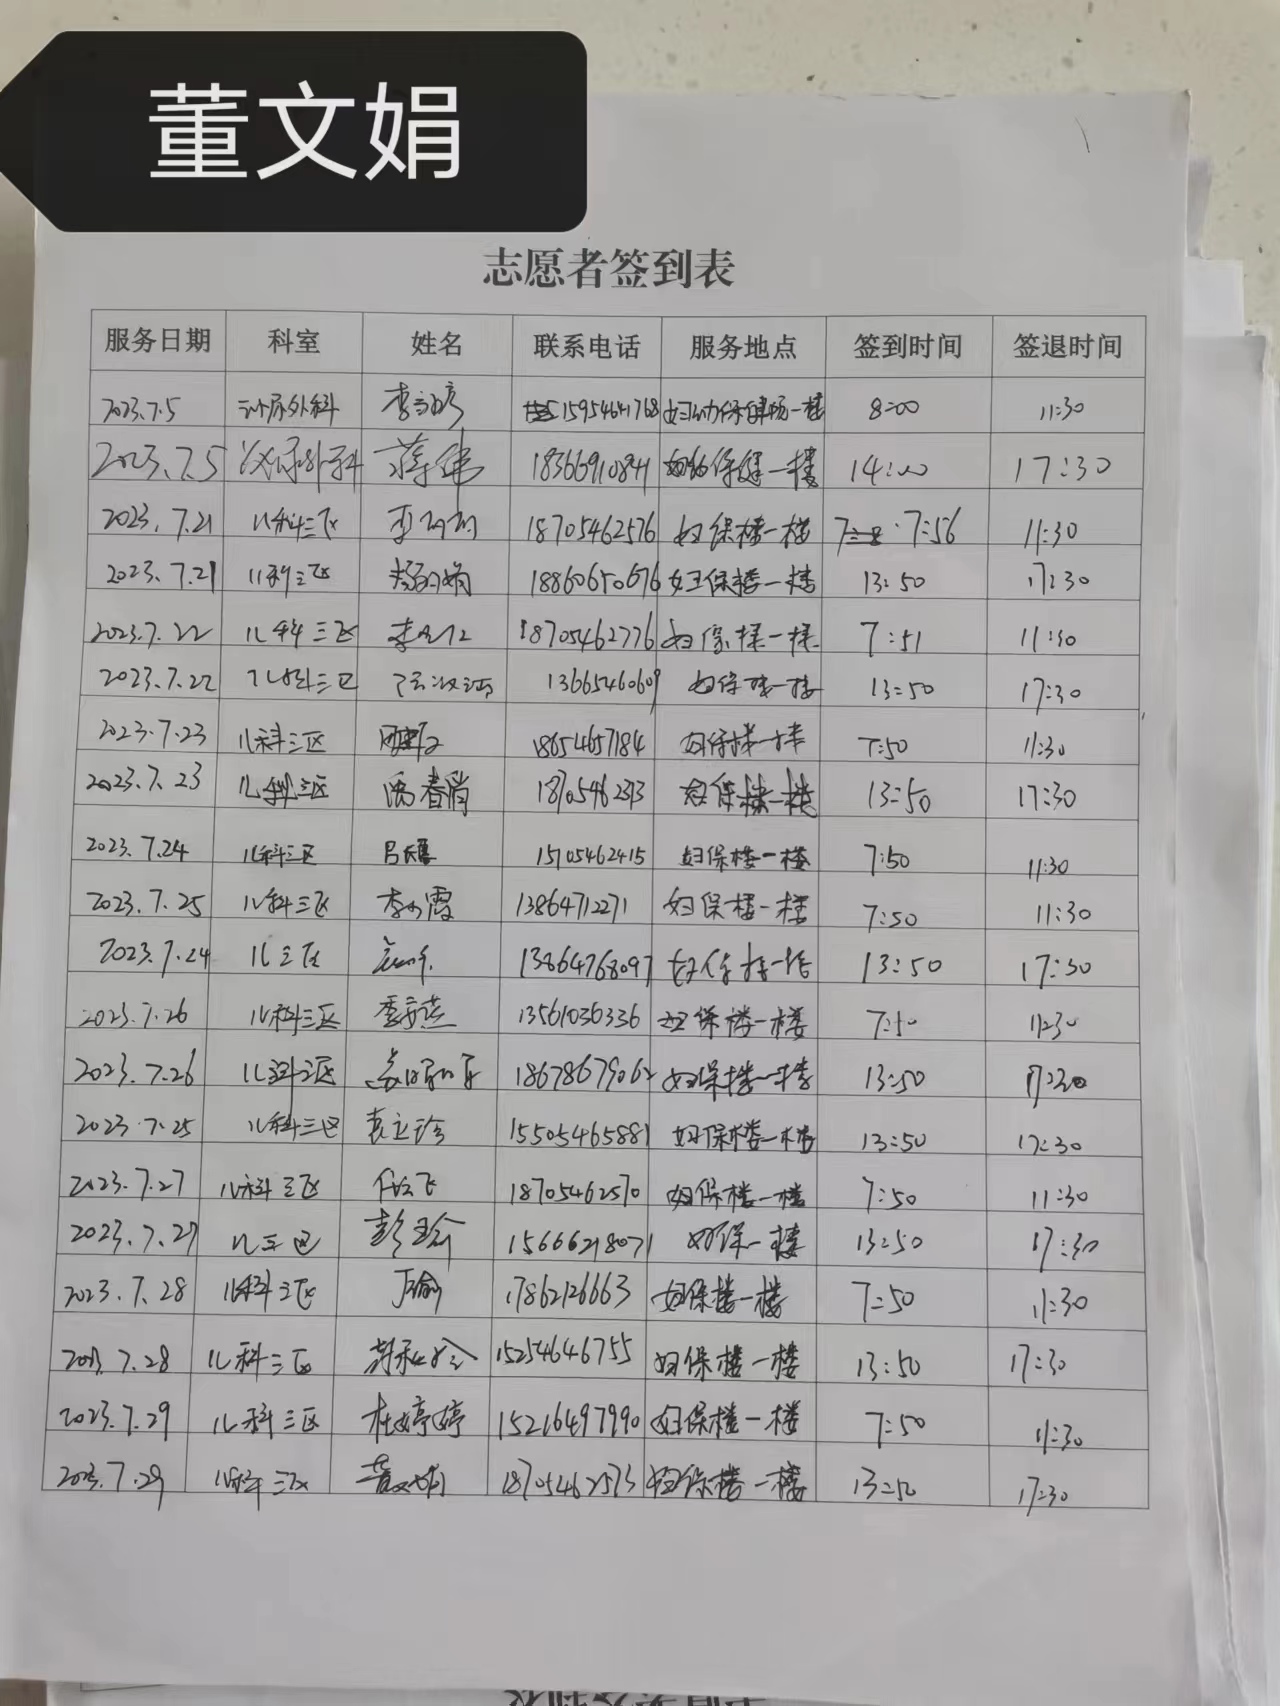 董文娟
志愿者签到表
服务日期 科室 姓名 联系电话 服务地点 签到时间 签退时间
2023.7.5 泌尿外科 15954641768 妇幼保健场一楼 8:00 11:30
2023.7.5 泌尿外科 蒋伟 18366910841 妇幼保健一楼 14:00 17:30
2023.7.21 儿科三区 18705462576 妇保楼一楼 7:56 11:30
2023.7.21 儿科三区 18860650676 妇保楼一楼 13:50 17:30
2023.7.22 儿科三区 18705462776 妇保楼一楼 7:51 11:30
2023.7.22 儿科三区 13665460609 妇保楼一楼 13:50 17:30
2023.7.23 儿科三区 18654657184 妇保楼一楼 7:50 11:30
2023.7.23 儿科三区 18705462373 妇保楼一楼 13:50 17:30
2023.7.24 儿科三区 15705462415 妇保楼一楼 7:50 11:30
2023.7.25 儿科三区 李小霞 13864712271 妇保楼一楼 7:50 11:30
2023.7.24 儿三区 13864768097 妇保楼一楼 13:50 17:30
2023.7.26 儿科三区 13561036336 妇保楼一楼 7:50 11:30
2023.7.26 儿科三区 18678679062 妇保楼一楼 13:50 17:30
2023.7.25 儿科三区 袁立珍 15505465881 妇保楼一楼 13:50 17:30
2023.7.27 儿科三区 18705462570 妇保楼一楼 7:50 11:30
2023.7.27 儿三区 彭玉翕 15666218071 妇保一楼 13:50 17:30
2023.7.28 儿科三区 17862126663 妇保楼一楼 7:50 11:30
2023.7.28 儿科三区 15254646755 妇保楼一楼 13:50 17:30
2023.7.29 儿科三区 杜婷婷 15216497990 妇保楼一楼 7:50 11:30
2023.7.29 儿科三区 18705462573 妇保楼一楼 13:50 17:30